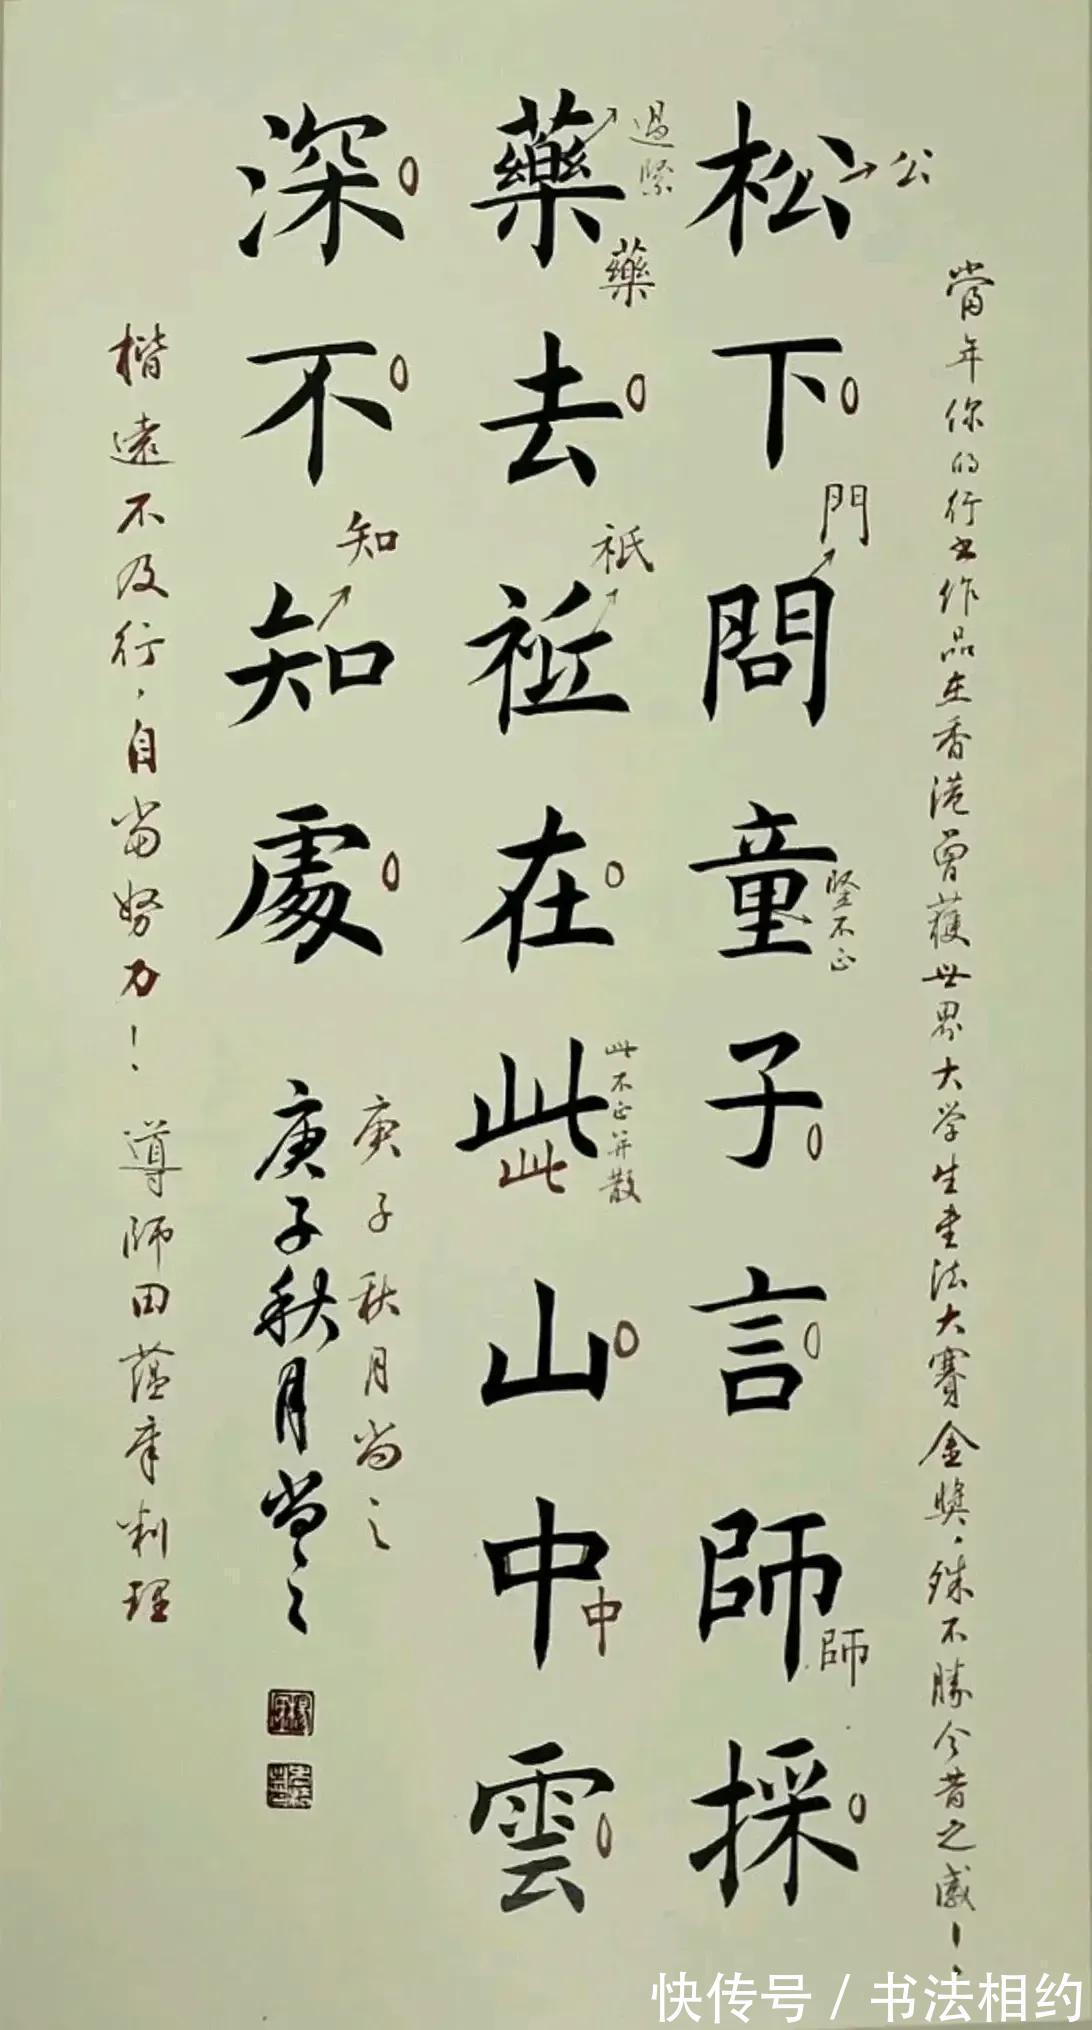 當年你的行书作品在香港曾獲世界大学生书法大賽金奬，殊不勝今昔之感！
公
松下問童子言師採
門
竖不正
師
過緊
藥
藥去祇在此山中雲
祇
此不正并散
此
中
深不知處
知
庚子秋月尚之
庚子秋月尚之
楷遠不及行，自当努力！
導師田蕴章判理
快传号 / 书法相约